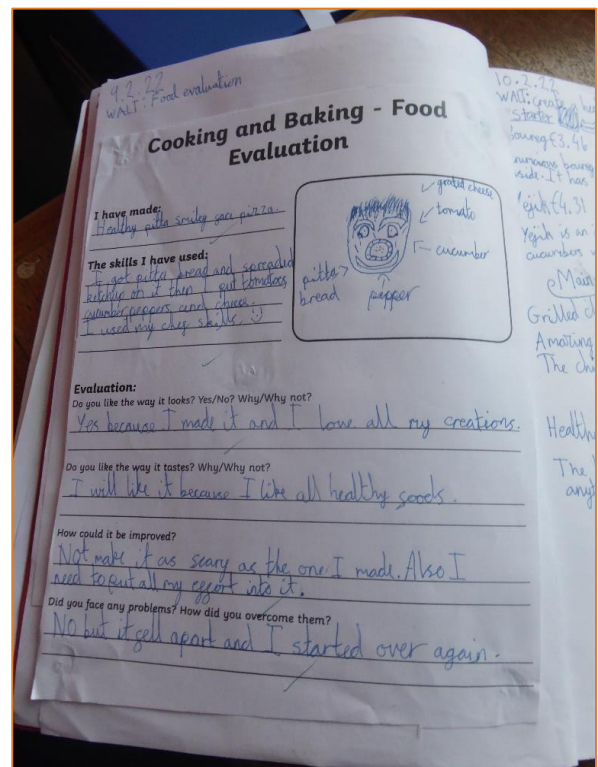 9.2.22
WALT: Food evaluation
Cooking and Baking - Food
Evaluation
I have made:
Healthy pitta smiley face pizza.
The skills I have used:
I got pitta bread and spreaded
ketchup on it then I put tomatoes
cucumber, peppers and cheese.
I used my chef skills.
grated cheese
tomato
cucumber
pitta
bread
pepper
Evaluation:
Do you like the way it looks? Yes/No? Why/Why not?
Yes because I made it and I love all my creations.
Do you like the way it tastes? Why/Why not?
I will like it because I like all healthy foods.
How could it be improved?
Not make it as scary as the one I made. Also I
need to put all my effort into it.
Did you face any problems? How did you overcome them?
No but it fell apart and I started over again.
10.2.22
WALT: create a
starter
boureg £3.46
boureg
inside. It has
Yejik £4.31
Yejik is an
cucumbers
Main
Grilled
Amazing
The
Health
The